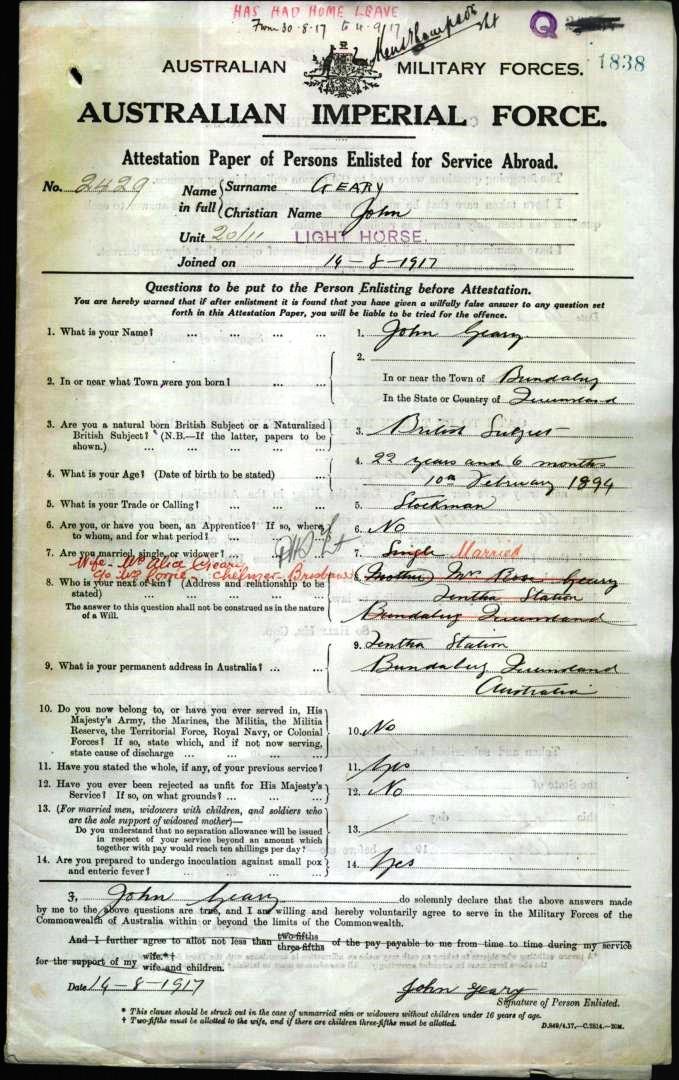 HAS HAD HOME LEAVE
From 30-8-17 to 4-9-17
Q
1838
AUSTRALIAN MILITARY FORCES.
AUSTRALIAN IMPERIAL FORCE.
Attestation Paper of Persons Enlisted for Service Abroad.
No. 2429
Name in full { Surname GEARY
Christian Name John
Unit 20/11 LIGHT HORSE.
Joined on 14-8-1917
Questions to be put to the Person Enlisting before Attestation.
You are hereby warned that if after enlistment it is found that you have given a wilfully false answer to any question set
forth in this Attestation Paper, you will be liable to be tried for the offence.
1. What is your Name? ... ... ... 1. John Geary
2.
2. In or near what Town were you born? ... ... In or near the Town of Bundaberg
In the State or Country of Queensland
3. Are you a natural born British Subject or a Naturalized
British Subject? (N.B.—If the latter, papers to be
shown.) ... ... 3. British Subject
4. What is your Age? (Date of birth to be stated) ... 4. 22 years and 6 months
10th February 1894
5. What is your Trade or Calling? ... ... ... 5. Stockman
6. Are you, or have you been, an Apprentice? If so, where,
to whom, and for what period? ... ... 6. No
7. Are you married, single, or widower? ... 7. Single Married
Wife - Mrs Alice Geary
Chelmer Brisbane
8. Who is your next of kin? (Address and relationship to be
stated) ... ... 8. (Mother) Mrs Rose Geary
Station
The answer to this question shall not be construed as in the nature
of a Will.
Bundaberg Queensland
9. What is your permanent address in Australia? ... ... 9. Station
Bundaberg Queensland
Australia
10. Do you now belong to, or have you ever served in, His
Majesty's Army, the Marines, the Militia, the Militia
Reserve, the Territorial Force, Royal Navy, or Colonial
Forces? If so, state which, and if not now serving,
state cause of discharge ... ... ... 10. No
11. Have you stated the whole, if any, of your previous service? 11. Yes
12. Have you ever been rejected as unfit for His Majesty's
Service? If so, on what grounds? ... ... ... 12. No
13. (For married men, widowers with children, and soldiers who
are the sole support of widowed mother)—
Do you understand that no separation allowance will be issued
in respect of your service beyond an amount which
together with pay would reach ten shillings per day? 13. /
14. Are you prepared to undergo inoculation against small pox
and enteric fever? ... ... ... ... 14. Yes
I, John Geary do solemnly declare that the above answers made
by me to the above questions are true, and I am willing and hereby voluntarily agree to serve in the Military Forces of the
Commonwealth of Australia within or beyond the limits of the Commonwealth.
And I further agree to allot not less than two-fifths three-fifths of the pay payable to me from time to time during my service
for the support of my wife.*† wife and children.
Date 14-8-1917 John Geary
Signature of Person Enlisted.
* This clause should be struck out in the case of unmarried men or widowers without children under 16 years of age.
† Two-fifths must be allotted to the wife, and if there are children three-fifths must be allotted.
D.849/4.17.—C.2814.—20M.